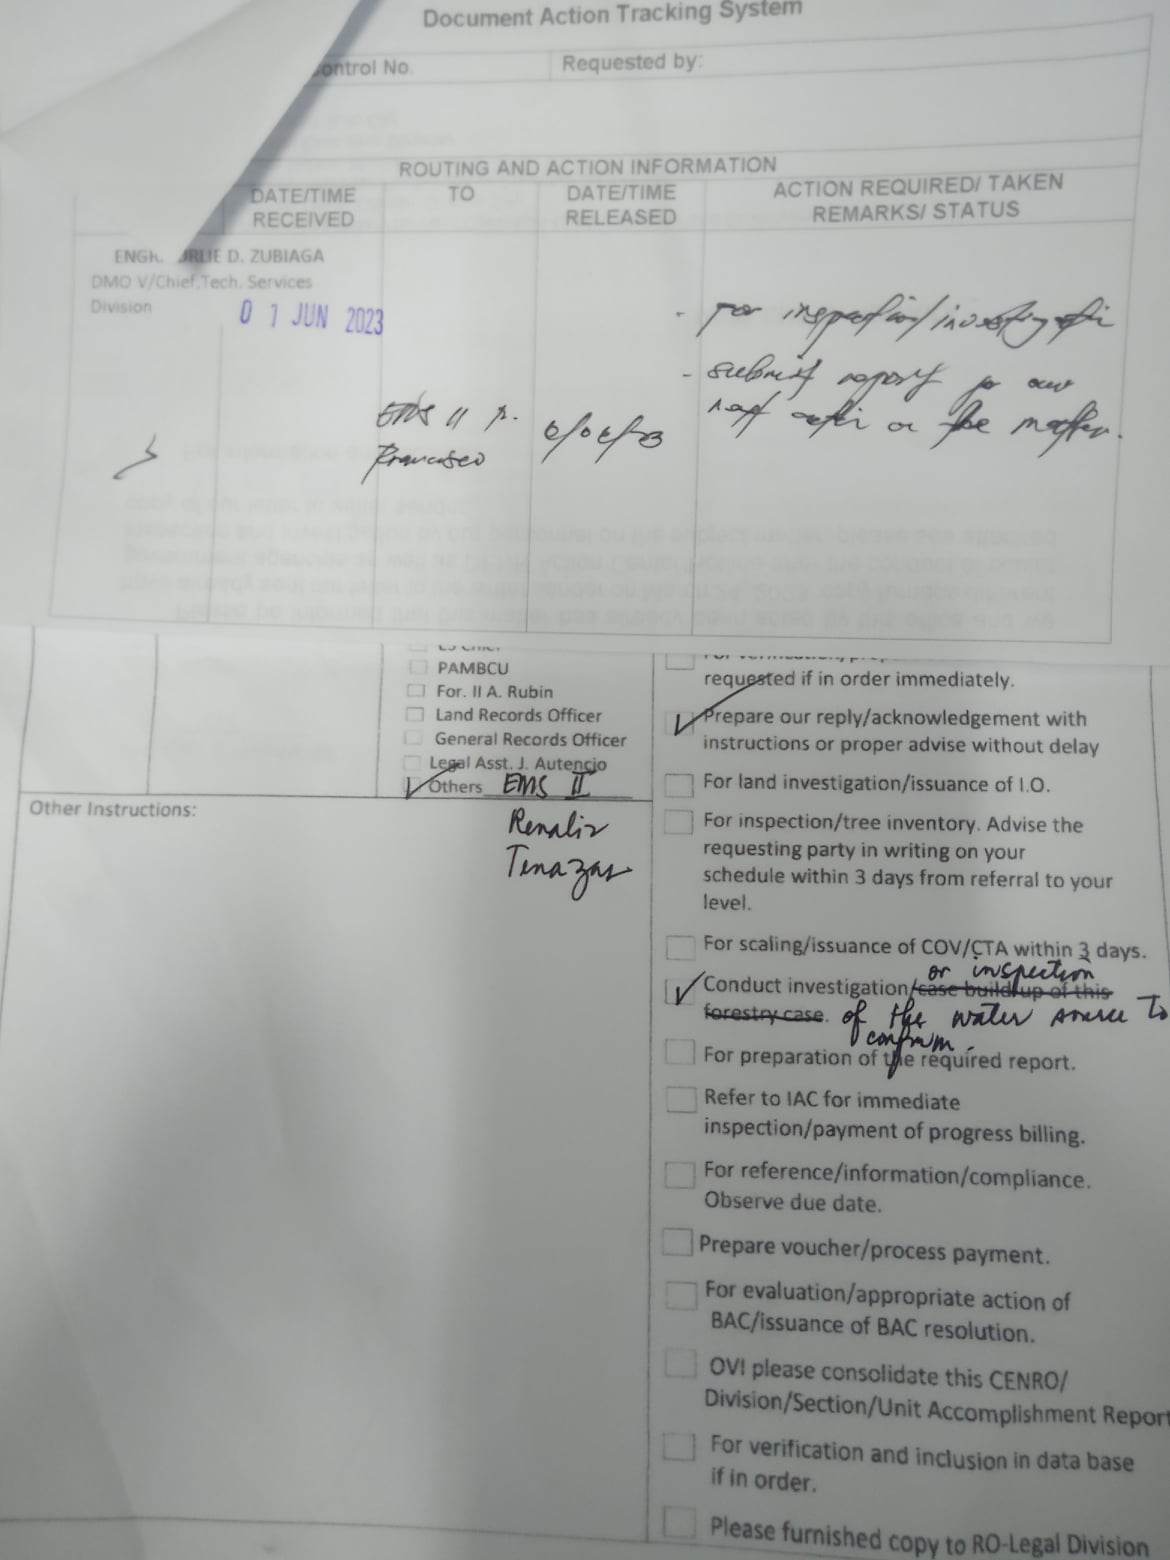 Document Action Tracking System
ontrol No.
Requested by:
ROUTING AND ACTION INFORMATION
DATE/TIME RECEIVED
TO
DATE/TIME RELEASED
ACTION REQUIRED/ TAKEN
REMARKS/ STATUS
ENGR. RLIE D. ZUBIAGA
DMO V/Chief,Tech. Services
Division
0 1 JUN 2023
EMS II
Francisco
- For inspection/investigation
- submit report for our
next action on the matter.
PAMBCU
For. II A. Rubin
Land Records Officer
General Records Officer
Legal Asst. J. Autencio
Others EMS II
Renaliz
Tenazas
Other Instructions:
requested if in order immediately.
Prepare our reply/acknowledgement with
instructions or proper advise without delay
For land investigation/issuance of I.O.
For inspection/tree inventory. Advise the
requesting party in writing on your
schedule within 3 days from referral to your
level.
For scaling/issuance of COV/CTA within 3 days.
or inspection
Conduct investigation/case buildup of this
forestry case. of the water source to
confirm.
For preparation of the required report.
Refer to IAC for immediate
inspection/payment of progress billing.
For reference/information/compliance.
Observe due date.
Prepare voucher/process payment.
For evaluation/appropriate action of
BAC/issuance of BAC resolution.
OVI please consolidate this CENRO/
Division/Section/Unit Accomplishment Report
For verification and inclusion in data base
if in order.
Please furnished copy to RO-Legal Division